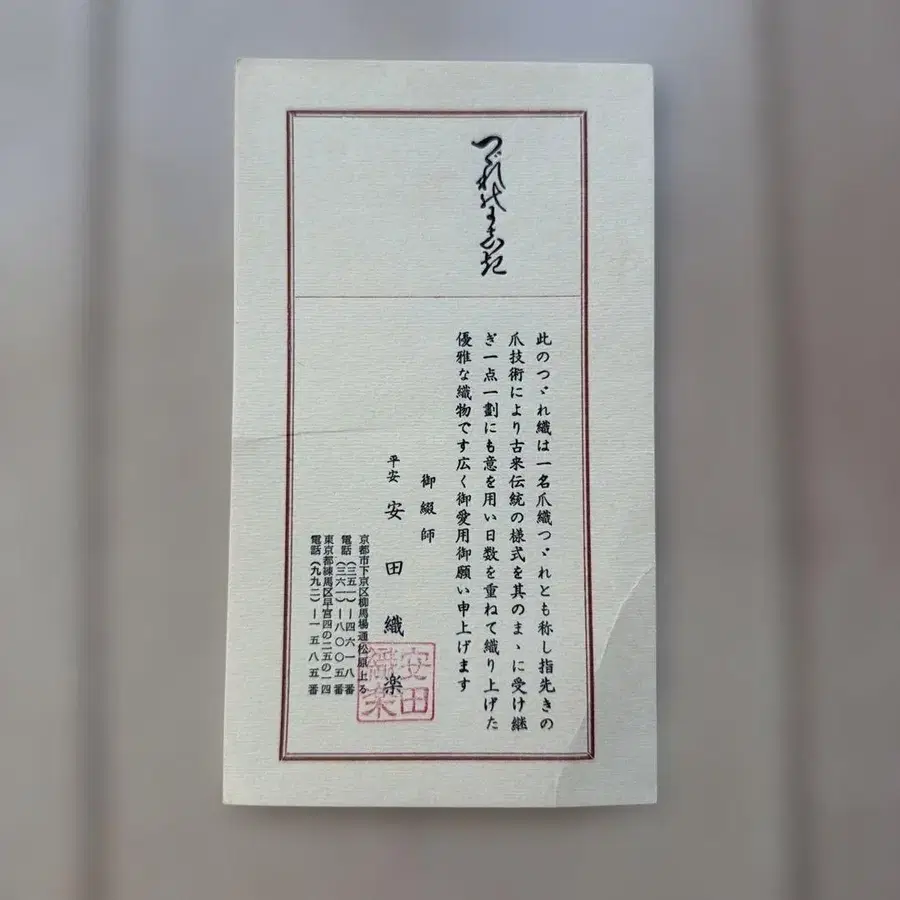 つゞれのしおり
此のつゞれ織は一名爪織つゞれとも称し指先きの
爪技術により古来伝統の様式を其のまゝに受け継
ぎ一点一劃にも意を用い日数を重ねて織り上げた
優雅な織物です広く御愛用御願い申上げます
御綴師
平安 安田織楽
安田織楽
京都市下京区柳馬場通松原上る
電話(三五一)ー四六一八番
(三六一)ー八〇〇五番
東京都練馬区早宮四の二五の一四
電話(九九二)ー一五八五番